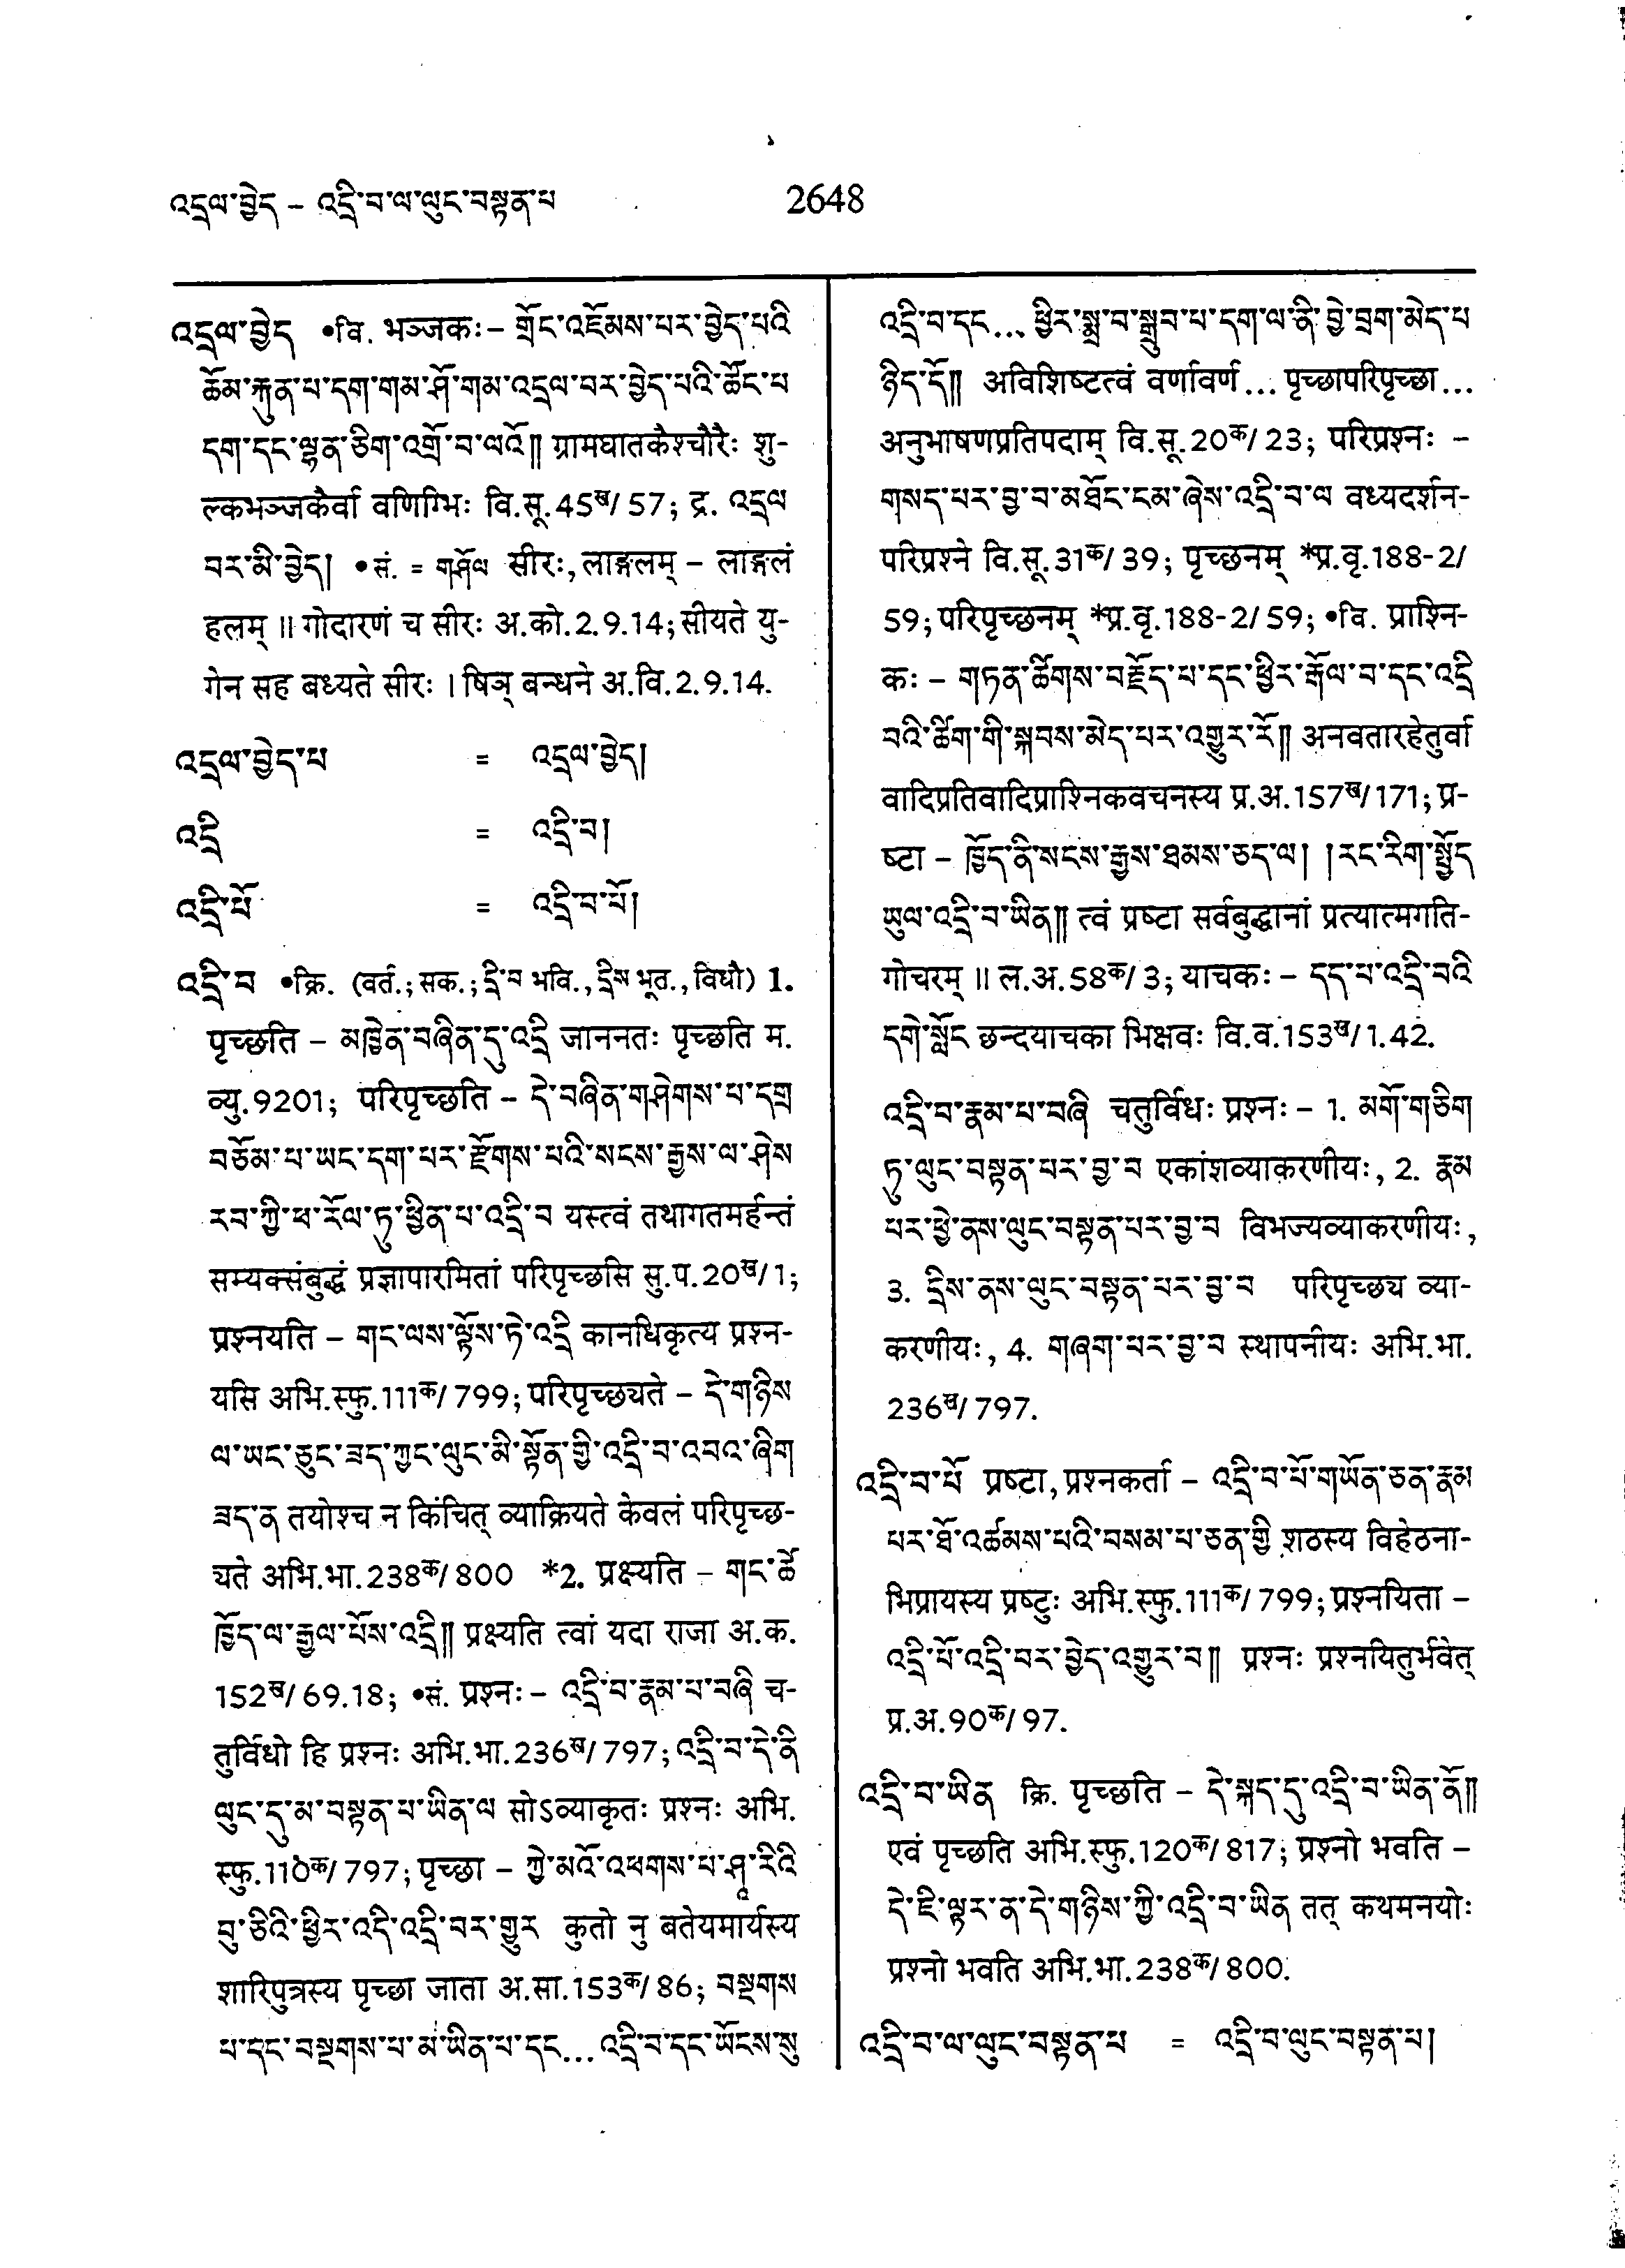 འདྲལ་བྱེད – འདྲི་བ་ལ་ལུང་བསྟན་པ
2648
འདྲལ་བྱེད •वि. भञ्जकः – གྲོང་འཇོམས་པར་བྱེད་པའི
ཆོམ་རྐུན་པ་དག་གམ་ཤོ་གམ་འདྲལ་བར་བྱེད་པའི་ཚོང་པ
དག་དང་ལྷན་ཅིག་འགྲོ་བ་ལའོ།། ग्रामघातकैश्चौरैः शु-
ल्कभञ्जकैर्वा वणिग्भिः वि.सू.45ख/57; द्र. འདྲལ
བར་མི་བྱེད། •सं. = གཤོལ सीरः, लाङ्गलम् – लाङ्गलं
हलम् ॥ गोदारणं च सीरः अ.को.2.9.14; सीयते यु-
गेन सह बध्यते सीरः । षिञ् बन्धने अ.वि.2.9.14.
འདྲལ་བྱེད་པ = འདྲལ་བྱེད།
འདྲི = འདྲི་བ།
འདྲི་པོ = འདྲི་བ་པོ།
འདྲི་བ •क्रि. (वर्त.; सक.; དྲི་བ भवि., དྲིས भूत., विधौ) 1.
पृच्छति – མཁྱེན་བཞིན་དུ་འདྲི जाननतः पृच्छति म.
व्यु.9201; परिपृच्छति – དེ་བཞིན་གཤེགས་པ་དགྲ
བཅོམ་པ་ཡང་དག་པར་རྫོགས་པའི་སངས་རྒྱས་ལ་ཤེས
རབ་ཀྱི་ཕ་རོལ་ཏུ་ཕྱིན་པ་འདྲི་བ यस्त्वं तथागतमर्हन्तं
सम्यक्संबुद्धं प्रज्ञापारमितां परिपृच्छसि सु.प.20ख/1;
प्रश्नयति – གང་ལས་ལྟོས་ཏེ་འདྲི कानधिकृत्य प्रश्न-
यसि अभि.स्फु.111क/799; परिपृच्छ्यते – དེ་གཉིས
ལ་ཡང་ཅུང་ཟད་ཀྱང་ལུང་མི་སྟོན་གྱི་འདྲི་བ་འབའ་ཞིག
ཟད་ན तयोश्च न किंचित् व्याक्रियते केवलं परिपृच्छ-
यते अभि.भा.238क/800 *2. प्रक्ष्यति – གང་ཚེ
ཁྱོད་ལ་རྒྱལ་པོས་འདྲི།། प्रक्ष्यति त्वां यदा राजा अ.क.
152ख/69.18; •सं. प्रश्नः – འདྲི་བ་རྣམ་པ་བཞི च-
तुर्विधो हि प्रश्नः अभि.भा.236ख/797; འདྲི་བ་དེ་ནི
ལུང་དུ་མ་བསྟན་པ་ཡིན་ལ सोऽव्याकृतः प्रश्नः अभि.
स्फु.110क/797; पृच्छा – ཀྱེ་མའོ་འཕགས་པ་ཤཱ་རིའི
བུ་ཅིའི་ཕྱིར་འདི་འདྲི་བར་གྱུར कुतो नु बतेयमार्यस्य
शारिपुत्रस्य पृच्छा जाता अ.सा.153क/86; བསྔགས
པ་དང་བསྔགས་པ་མ་ཡིན་པ་དང... འདྲི་བ་དང་ཡོངས་སུ
འདྲི་བ་དང... ཕྱིར་སྨྲ་བ་སྒྲུབ་པ་དག་ལ་ནི་བྱེ་བྲག་མེད་པ
ཉིད་དོ།། अविशिष्टत्वं वर्णावर्ण... पृच्छापरिपृच्छा...
अनुभाषणप्रतिपदाम् वि.सू.20क/23; परिप्रश्नः –
གསད་པར་བྱ་བ་མཐོང་ངམ་ཞེས་འདྲི་བ་ལ वध्यदर्शन-
परिप्रश्ने वि.सू.31क/39; पृच्छनम् *प्र.वृ.188-2/
59; परिपृच्छनम् *प्र.वृ.188-2/59; •वि. प्राश्नि-
कः – གཏན་ཚིགས་བརྗོད་པ་དང་ཕྱིར་རྒོལ་བ་དང་འདྲི
བའི་ཚིག་གི་སྐབས་མེད་པར་འགྱུར་རོ།། अनवतारहेतुर्वा
वादिप्रतिवादिप्राश्निकवचनस्य प्र.अ.157ख/171; प्र-
ष्टा – ཁྱོད་ནི་སངས་རྒྱས་ཐམས་ཅད་ལ། །རང་རིག་སྤྱོད
ཡུལ་འདྲི་བ་ཡིན།། त्वं प्रष्टा सर्वबुद्धानां प्रत्यात्मगति-
गोचरम् ॥ ल.अ.58क/3; याचकः – དད་པ་འདྲི་བའི
དགེ་སློང छन्दयाचका भिक्षवः वि.व.153ख/1.42.
འདྲི་བ་རྣམ་པ་བཞི चतुर्विधः प्रश्नः – 1. མགོ་གཅིག
ཏུ་ལུང་བསྟན་པར་བྱ་བ एकांशव्याकरणीयः, 2. རྣམ
པར་ཕྱེ་ནས་ལུང་བསྟན་པར་བྱ་བ विभज्यव्याकरणीयः,
3. དྲིས་ནས་ལུང་བསྟན་པར་བྱ་བ परिपृच्छ्य व्या-
करणीयः, 4. གཞག་པར་བྱ་བ स्थापनीयः अभि.भा.
236ख/797.
འདྲི་བ་པོ प्रष्टा, प्रश्नकर्ता – འདྲི་བ་པོ་གཡོན་ཅན་རྣམ
པར་ཐོ་འཚམས་པའི་བསམ་པ་ཅན་གྱི शठस्य विहेठना-
भिप्रायस्य प्रष्टुः अभि.स्फु.111क/799; प्रश्नयिता –
འདྲི་པོ་འདྲི་བར་བྱེད་འགྱུར་བ།། प्रश्नः प्रश्नयितुर्भवेत्
प्र.अ.90क/97.
འདྲི་བ་ཡིན क्रि. पृच्छति – དེ་སྐད་དུ་འདྲི་བ་ཡིན་ནོ།།
एवं पृच्छति अभि.स्फु.120क/817; प्रश्नो भवति –
དེ་ཇི་ལྟར་ན་དེ་གཉིས་ཀྱི་འདྲི་བ་ཡིན तत् कथमनयोः
प्रश्नो भवति अभि.भा.238क/800.
འདྲི་བ་ལ་ལུང་བསྟན་པ = འདྲི་བ་ལུང་བསྟན་པ།